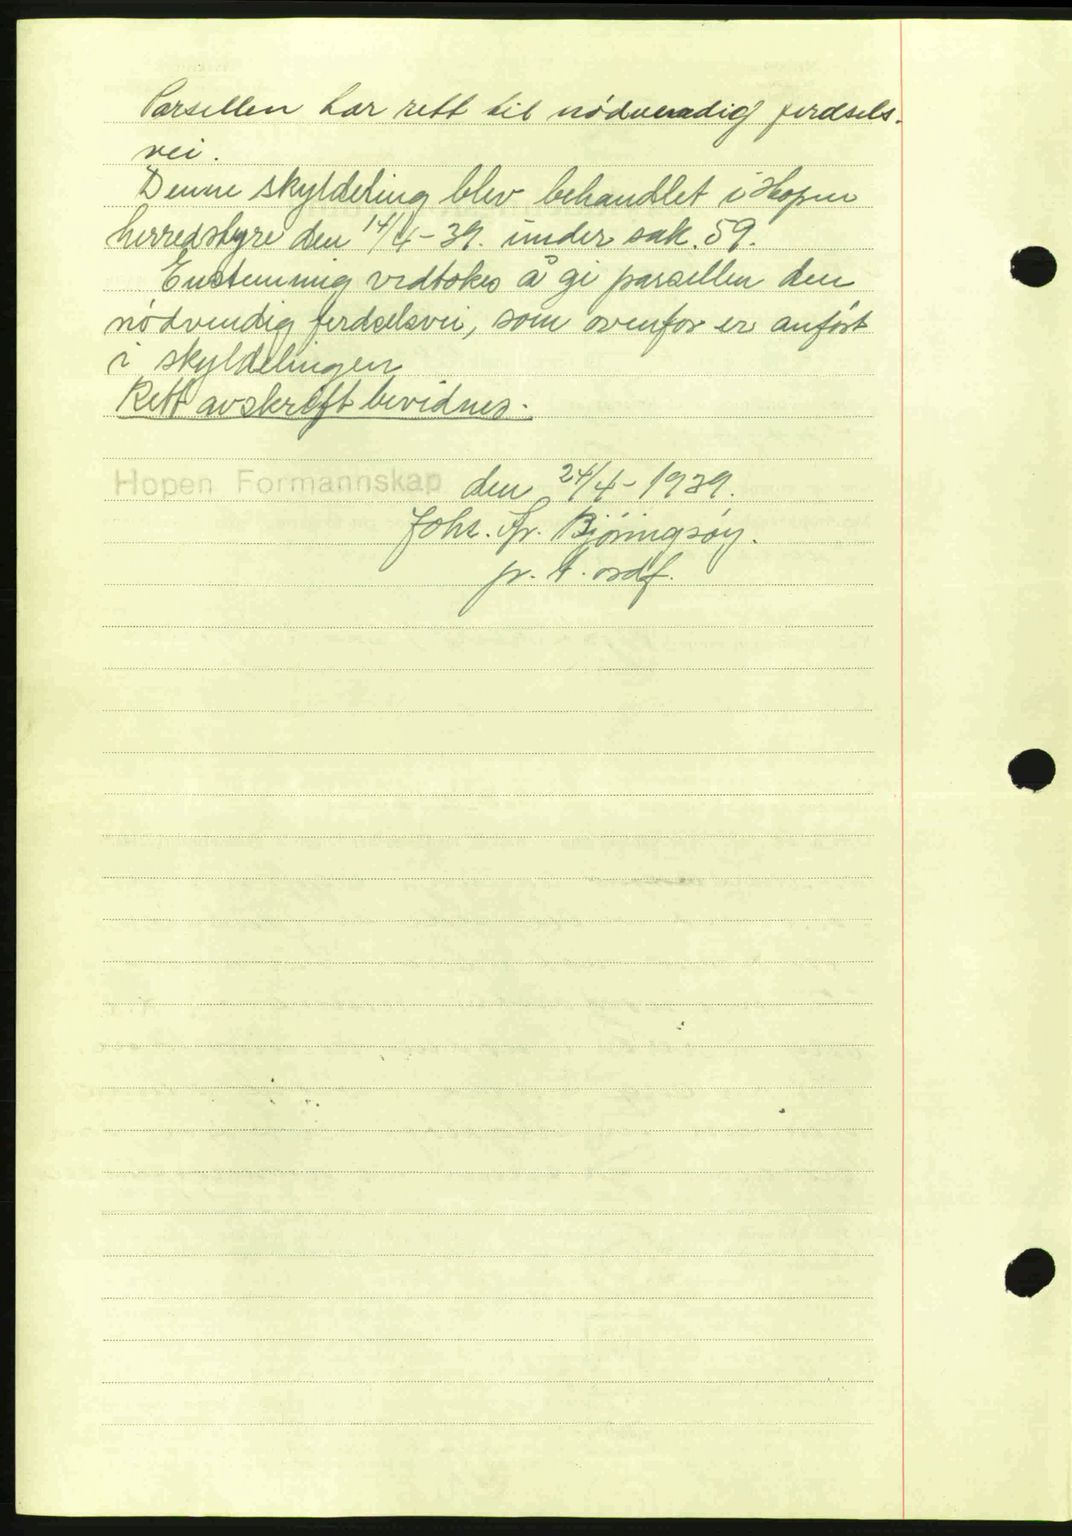 Parsellen har rett til nødvendig ferdsels-
vei.
Denne skyldeling blev behandlet i Hopen
herredstyre den 14/4-39. under sak. 59.
Enstemmig vedtokes å gi parsellen den
nødvendig ferdselsvei, som ovenfor er anført
i skyldelingen
Rett avskrift bevidnes.
Hopen Formannskap den 24/4-1939.
Johs. Fr. Bjøringsøy.
p. t. ordf.